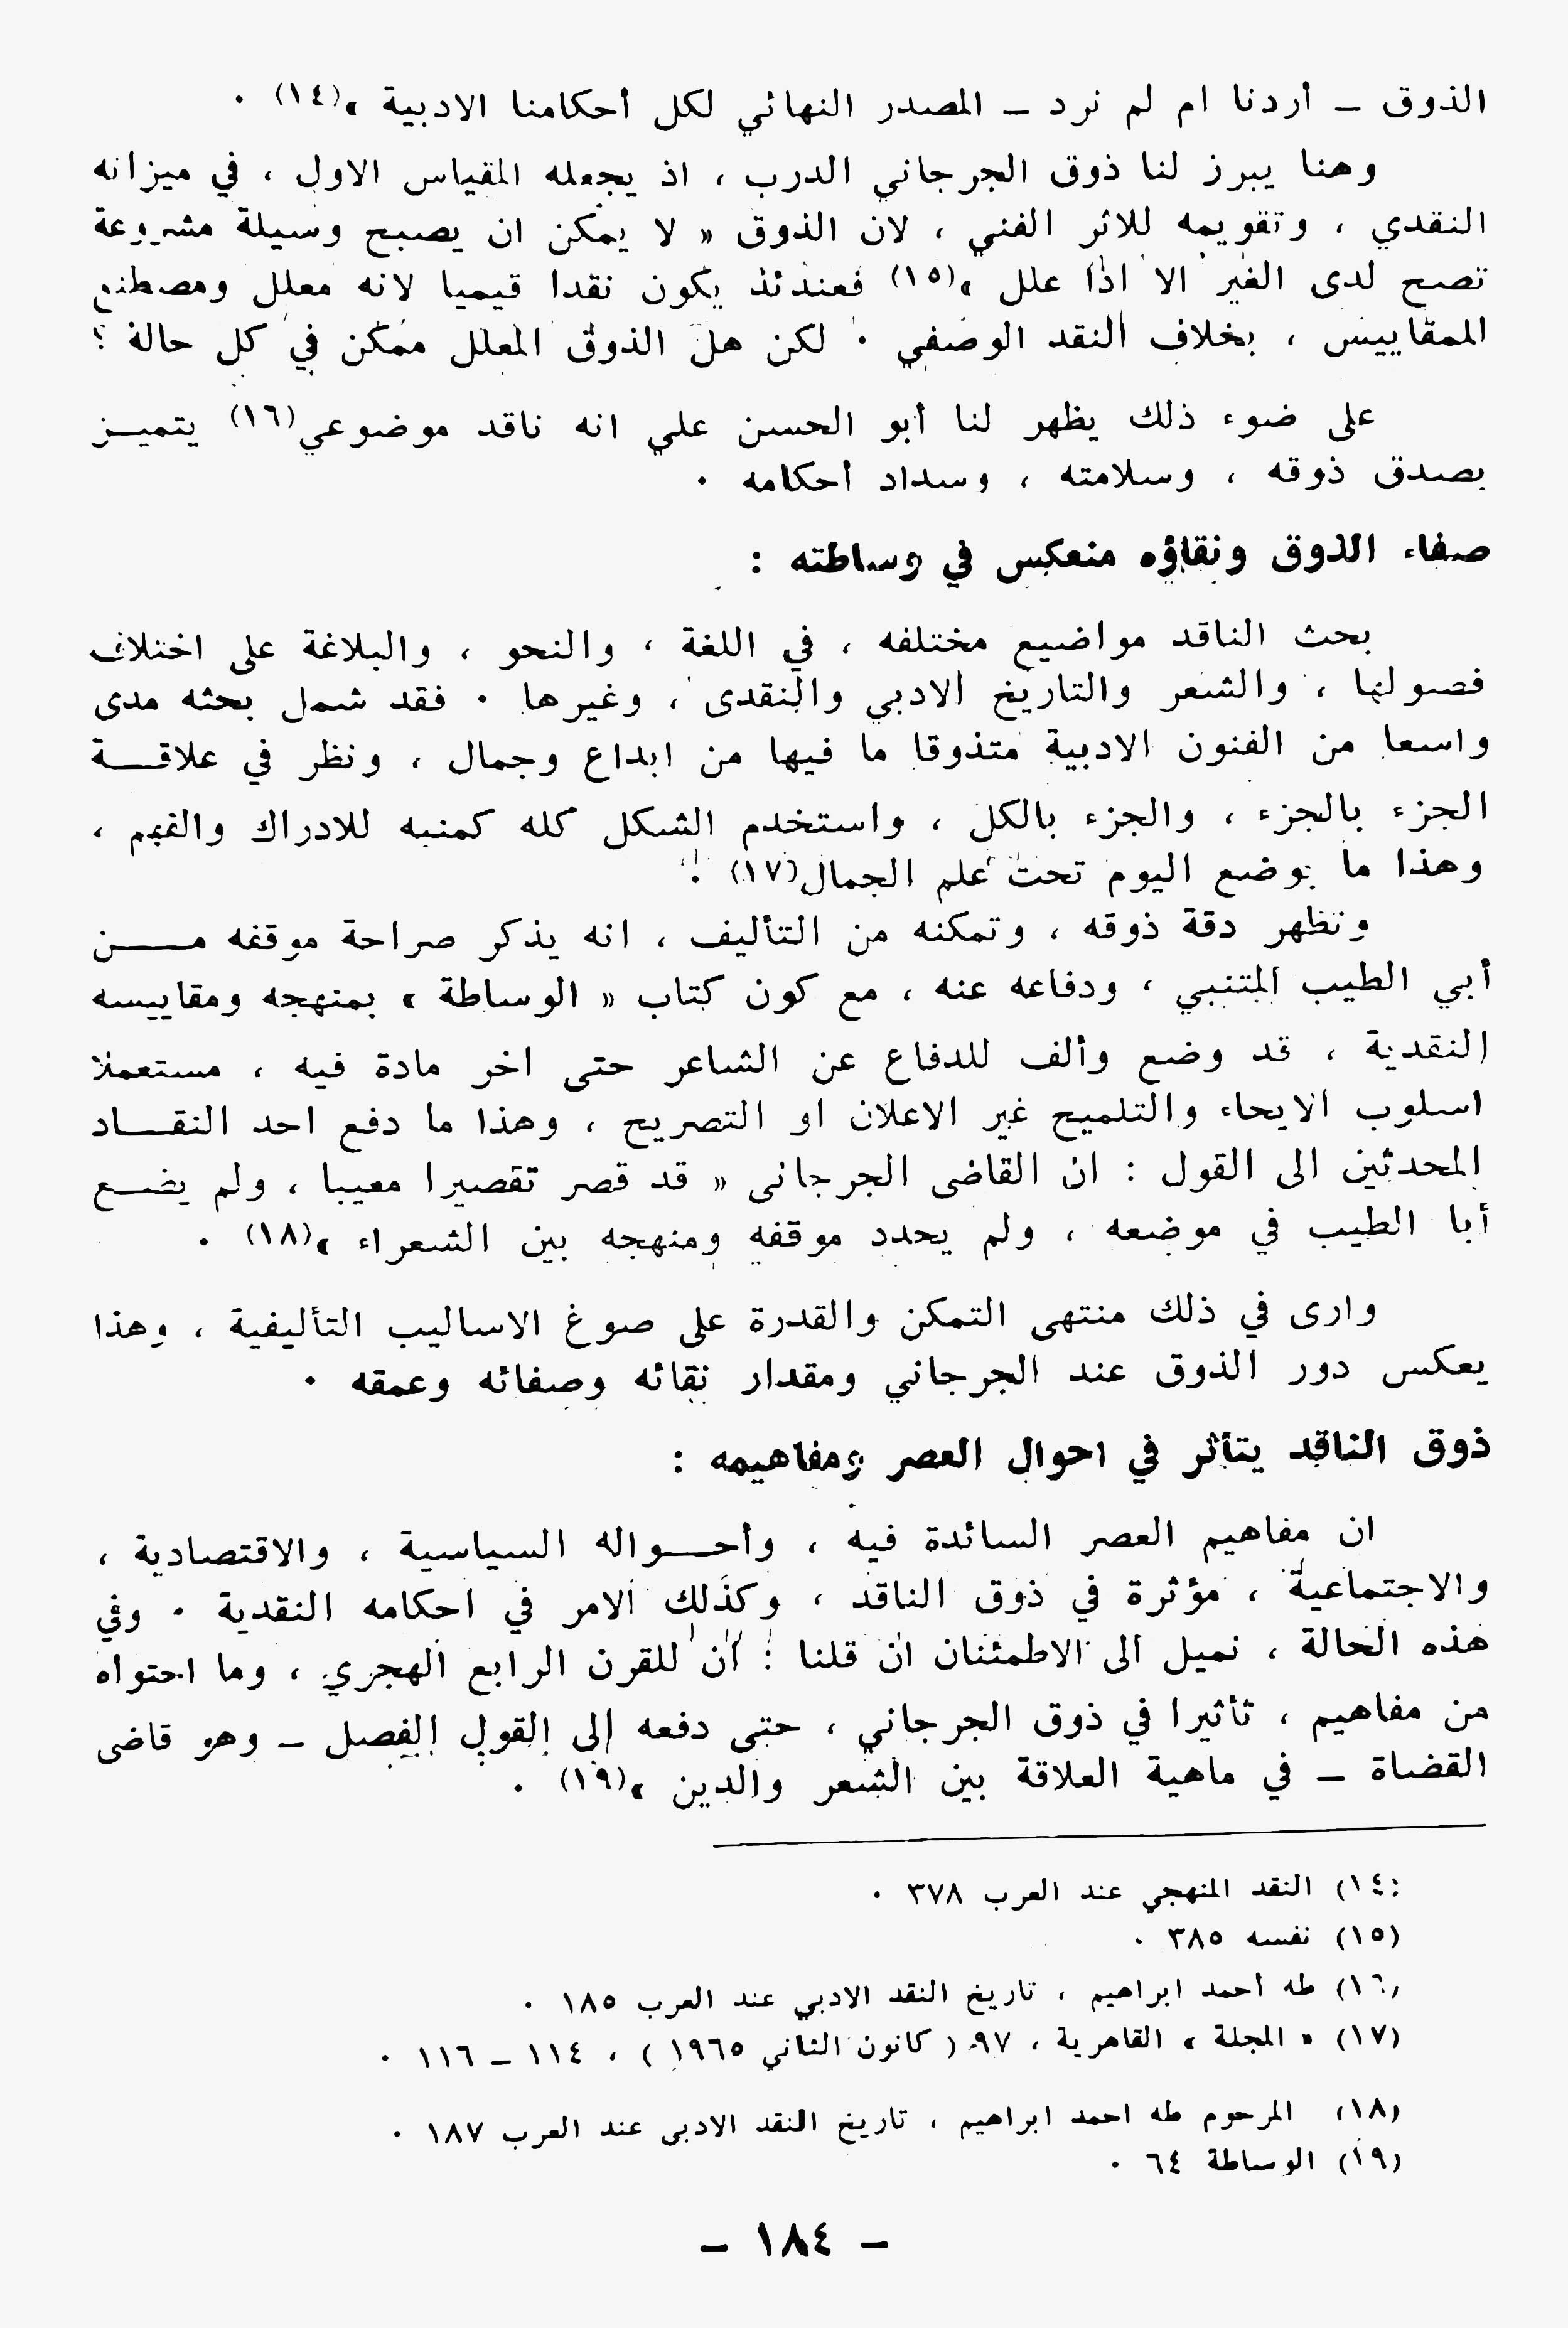 الذوق ـ أردنا ام لم نرد ـ المصدر النهائي لكل أحكامنا الادبية »(١٤) ٠
وهنا يبرز لنا ذوق الجرجاني الدرب ، اذ يجعله المقياس الاول ، في ميزانه
النقدي ، وتقويمه للاثر الفني ، لان الذوق « لا يمكن ان يصبح وسيلة مشروعة
تصح لدى الغير الا اذا علل »(١٥) فعندئذ يكون نقدا قيميا لانه معلل ومصطنع
المقاييس ، بخلاف النقد الوصفي ٠ لكن هل الذوق المعلل ممكن في كل حالة ؟
على ضوء ذلك يظهر لنا أبو الحسن علي انه ناقد موضوعي(١٦) يتميز
بصدق ذوقه ، وسلامته ، وسداد أحكامه ٠
صفاء الذوق ونقاؤه منعكس في وساطته :
بحث الناقد مواضيع مختلفه ، في اللغة ، والنحو ، والبلاغة على اختلاف
فصولها ، والشعر والتاريخ الادبي والنقدى ، وغيرها ٠ فقد شمل بحثه مدى
واسعا من الفنون الادبية متذوقا ما فيها من ابداع وجمال ، ونظر في علاقة
الجزء بالجزء ، والجزء بالكل ، واستخدم الشكل كله كمنبه للادراك والفهم ،
وهذا ما يوضع اليوم تحت علم الجمال(١٧) ٠
وتظهر دقة ذوقه ، وتمكنه من التأليف ، انه يذكر صراحة موقفه من
أبي الطيب المتنبي ، ودفاعه عنه ، مع كون كتاب « الوساطة » بمنهجه ومقاييسه
النقدية ، قد وضع وألف للدفاع عن الشاعر حتى اخر مادة فيه ، مستعملا
اسلوب الايحاء والتلميح غير الاعلان او التصريح ، وهذا ما دفع احد النقاد
المحدثين الى القول : ان القاضى الجرجانى « قد قصر تقصيرا معيبا ، ولم يضع
أبا الطيب في موضعه ، ولم يحدد موقفه ومنهجه بين الشعراء »(١٨) ٠
وارى في ذلك منتهى التمكن والقدرة على صوغ الاساليب التأليفية ، وهذا
يعكس دور الذوق عند الجرجاني ومقدار نقائه وصفائه وعمقه ٠
ذوق الناقد يتأثر في احوال العصر ومفاهيمه :
ان مفاهيم العصر السائدة فيه ، وأحواله السياسية ، والاقتصادية ،
والاجتماعية ، مؤثرة في ذوق الناقد ، وكذلك الامر في احكامه النقدية ٠ وفي
هذه الحالة ، نميل الى الاطمئنان ان قلنا : ان للقرن الرابع الهجري ، وما احتواه
من مفاهيم ، تأثيرا في ذوق الجرجاني ، حتى دفعه إلى القول الفصل ـ وهو قاضى
القضاة ـ في ماهية العلاقة بين الشعر والدين »(١٩) ٠
(١٤) النقد المنهجي عند العرب ٣٧٨ ٠
(١٥) نفسه ٣٨٥ ٠
(١٦) طه أحمد ابراهيم ، تاريخ النقد الادبي عند العرب ١٨٥ ٠
(١٧) « المجلة » القاهرية ، ٩٧ ( كانون الثاني ١٩٦٥ ) ، ١١٤ ـ ١١٦ ٠
(١٨) المرحوم طه احمد ابراهيم ، تاريخ النقد الادبى عند العرب ١٨٧ ٠
(١٩) الوساطة ٦٤ ٠
ـ ١٨٤ ـ